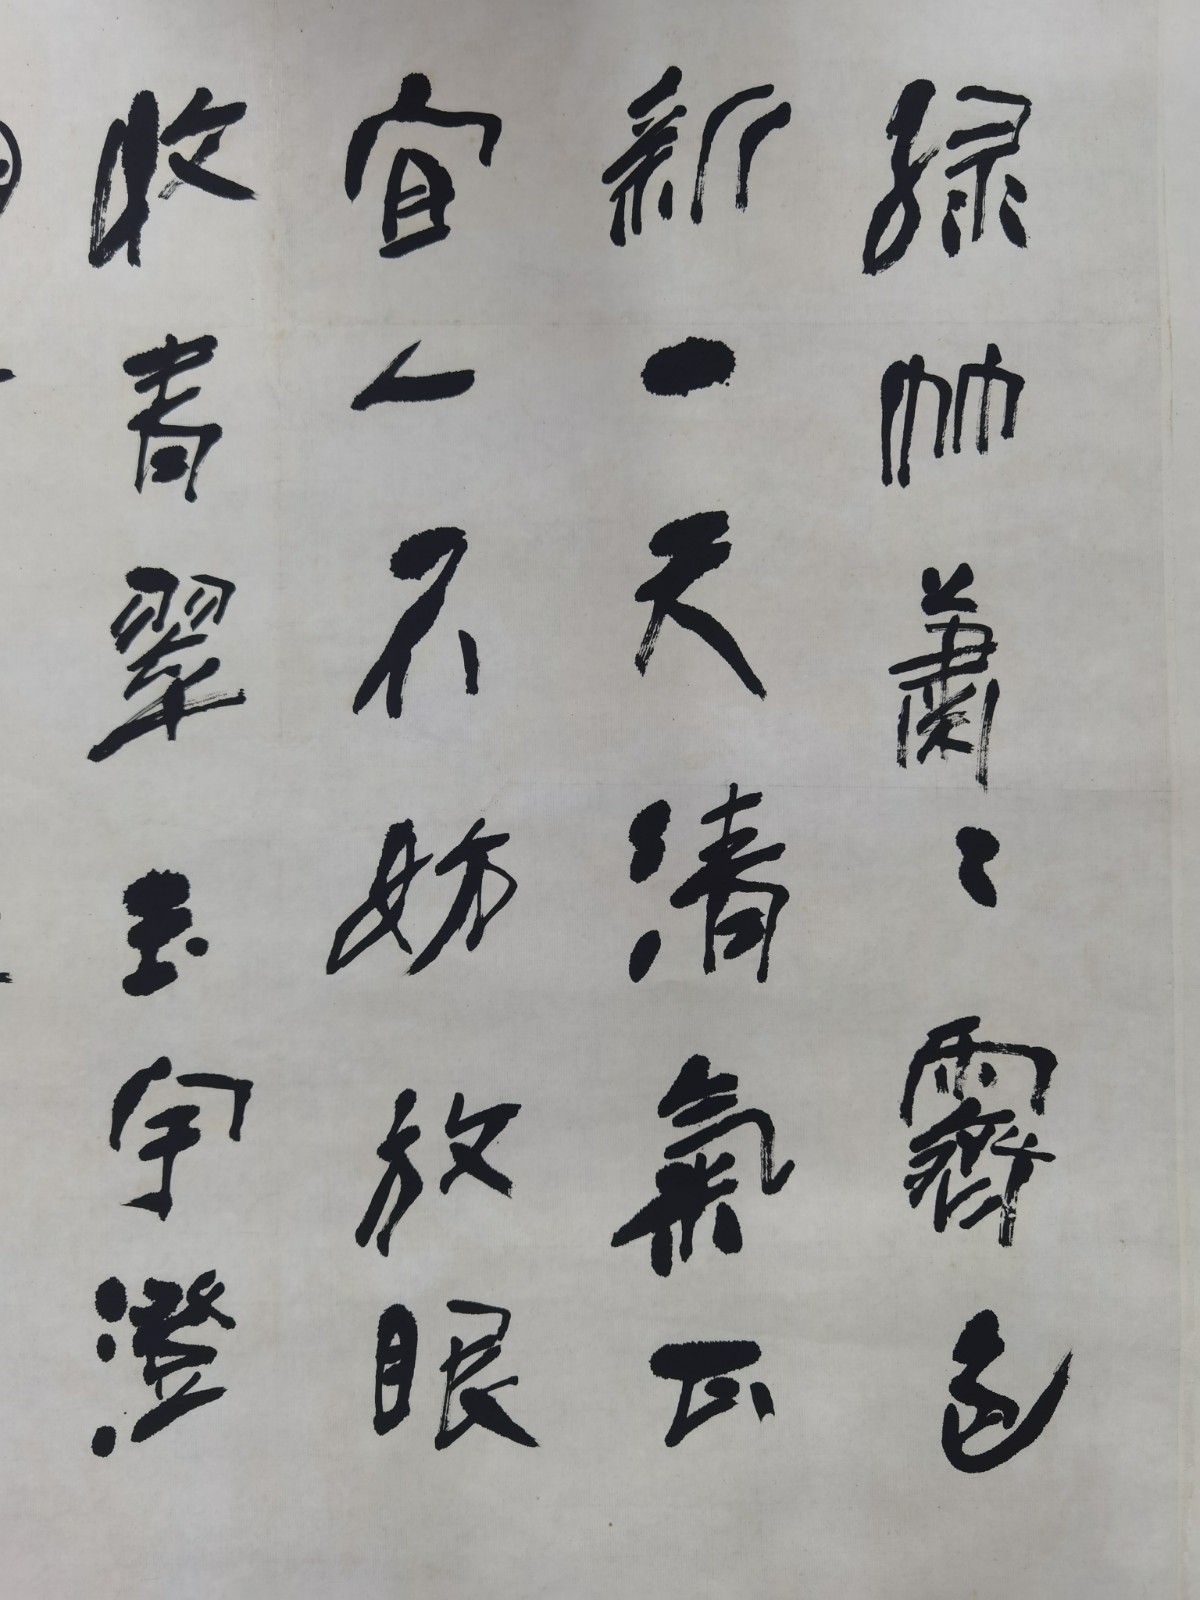 綠竹蕭〻霽色
新一天清氣正
宜人不妨放眼
收青翠玉宇澄